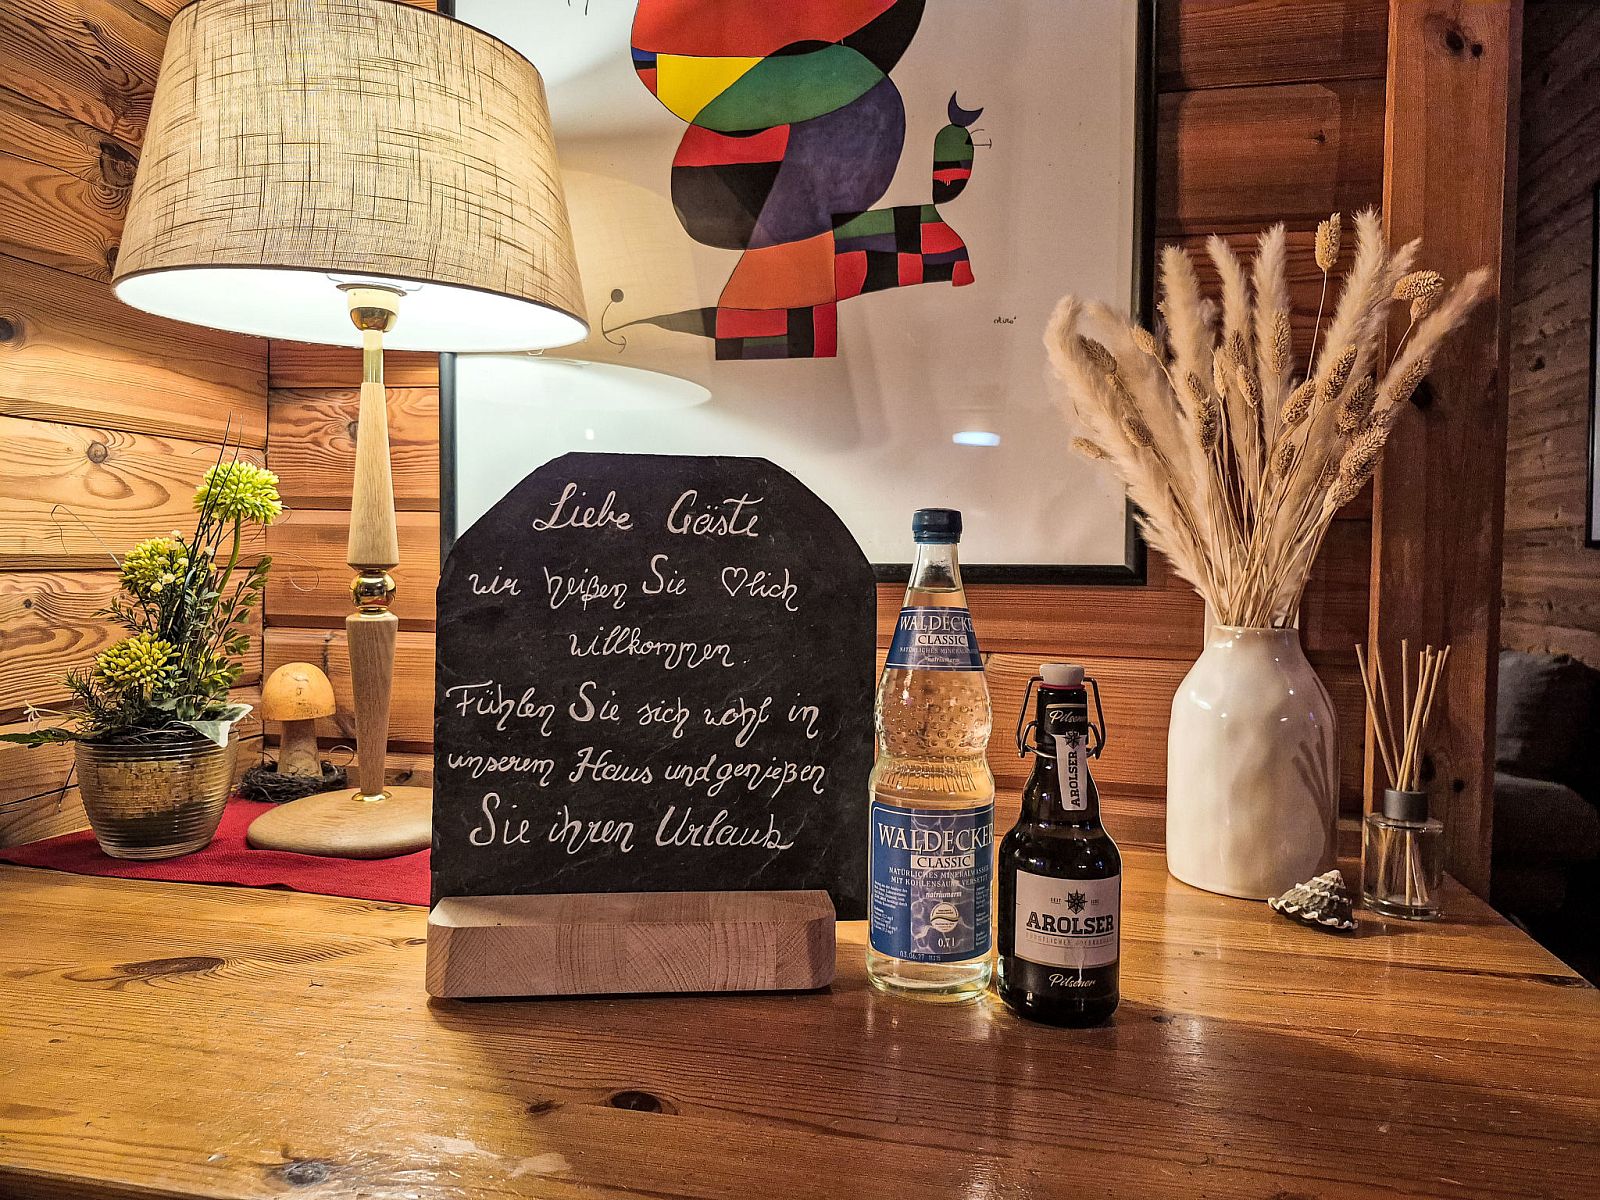 Liebe Gäste
wir heißen Sie ♡lich
willkommen.
Fühlen Sie sich wohl in
unserem Haus und genießen
Sie ihren Urlaub
Miró
WALDECKER
CLASSIC
NATÜRLICHES MINERALWASSER
natriumarm
WALDECKER
CLASSIC
NATÜRLICHES MINERALWASSER
MIT KOHLENSÄURE VERSETZT
natriumarm
0,7 l
Pilsener
AROLSER
AROLSER
Pilsener